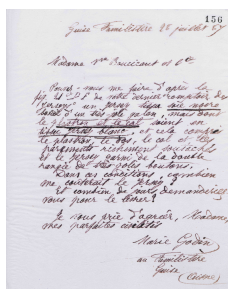 156
Guise Familistère 26 juillet 87
Madame Vve Boucicaut et Cie
Pouvez-vous me faire d'après la
fig. de votre dernier comptoir des
jerseys un jersey
d'un très de galon, mais dont
le plastron et le col soient en
jersey blanc et cela compris
le plastron, le dos, le col et les
parements richement soutachés
et le jersey garni de la double
rangée de très jolis boutons.
Dans ces conditions, combien
me coûterait le jersey ?
Et combien de jours demanderiez
vous pour le livrer ?
Je vous prie d'agréer, Madame,
mes parfaites civilités
Marie Godin
au Familistère
Guise
(Aisne)